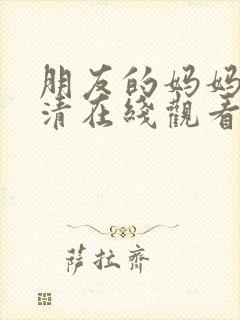 朋友的妈妈
清在綫觀看
萨拉齊